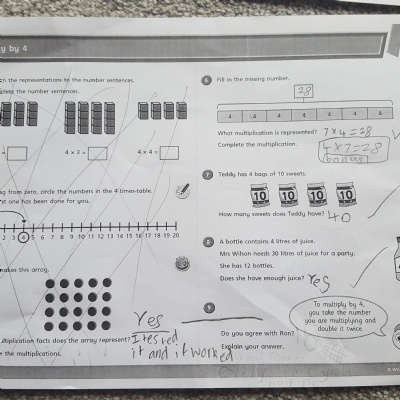 y by 4
ch the representations to the number sentences.
plete the number sentences.
4 × 3 =
4 × 4 =
ng from zero, circle the numbers in the 4 times-table.
st one has been done for you.
2 3 4 5 6 7 8 9 10 11 12 13 14 15 16 17 18 19 20
makes this array.
ultiplication facts does the array represent?
e the multiplications.
6 Fill in the missing number.
28
4 4 4 4 4 4 4
What multiplication is represented? 7×4=28
Complete the multiplication. 4×7=28
bonus
7 Teddy has 4 bags of 10 sweets.
10 10 10 10
How many sweets does Teddy have? 40
8 A bottle contains 4 litres of juice.
Mrs Wilson needs 30 litres of juice for a party.
She has 12 bottles.
Does she have enough juice? Yes
9
To multiply by 4,
you take the number
you are multiplying and
double it twice.
Do you agree with Ron?
Explain your answer.
Yes
I tested
it and it worked